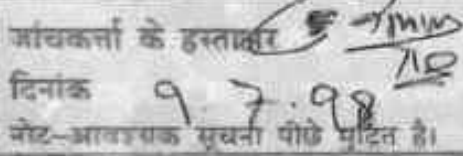 जांचकर्त्ता के हस्ताक्षर
दिनांक 9.7.98
नोट-आवश्यक सूचना पीछे मुद्रित है।